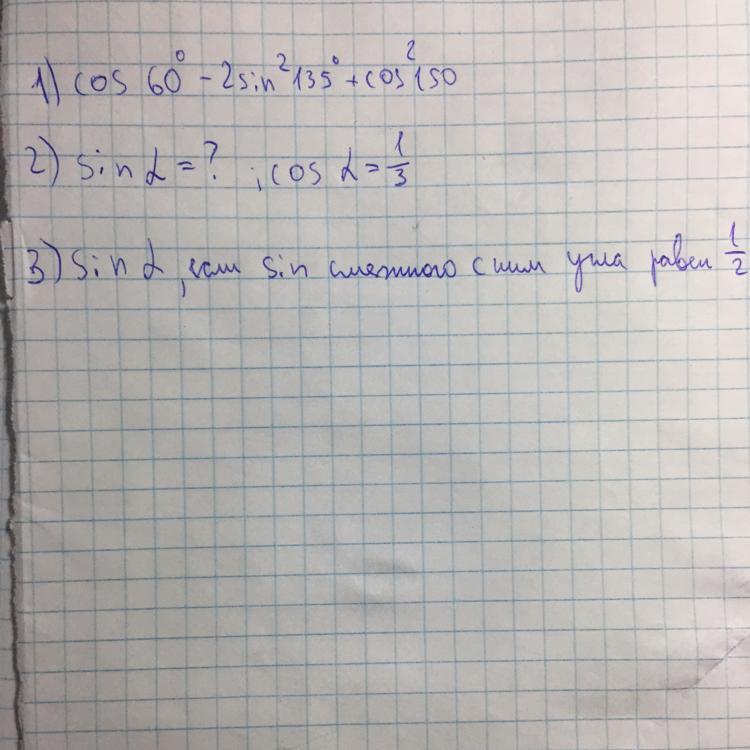 1) cos 60° - 2sin²135° + cos²150
2) sin α = ? , cos α = 1/3
3) sin α, если sin смежного с ним угла равен 1/2